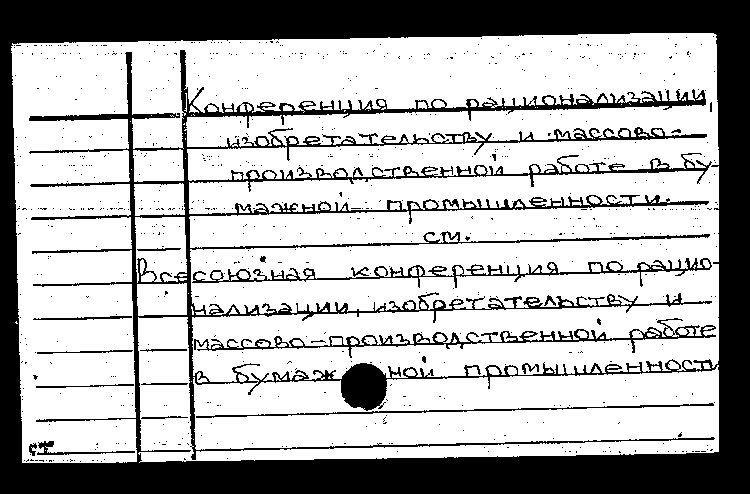 Конференция по рационализации,
изобретательству и массово-
производственной работе в бу-
мажной промышленности.
см.
Всесоюзная конференция по рацио-
нализации, изобретательству и
массово-производственной работе
в бумажной промышленности
ст